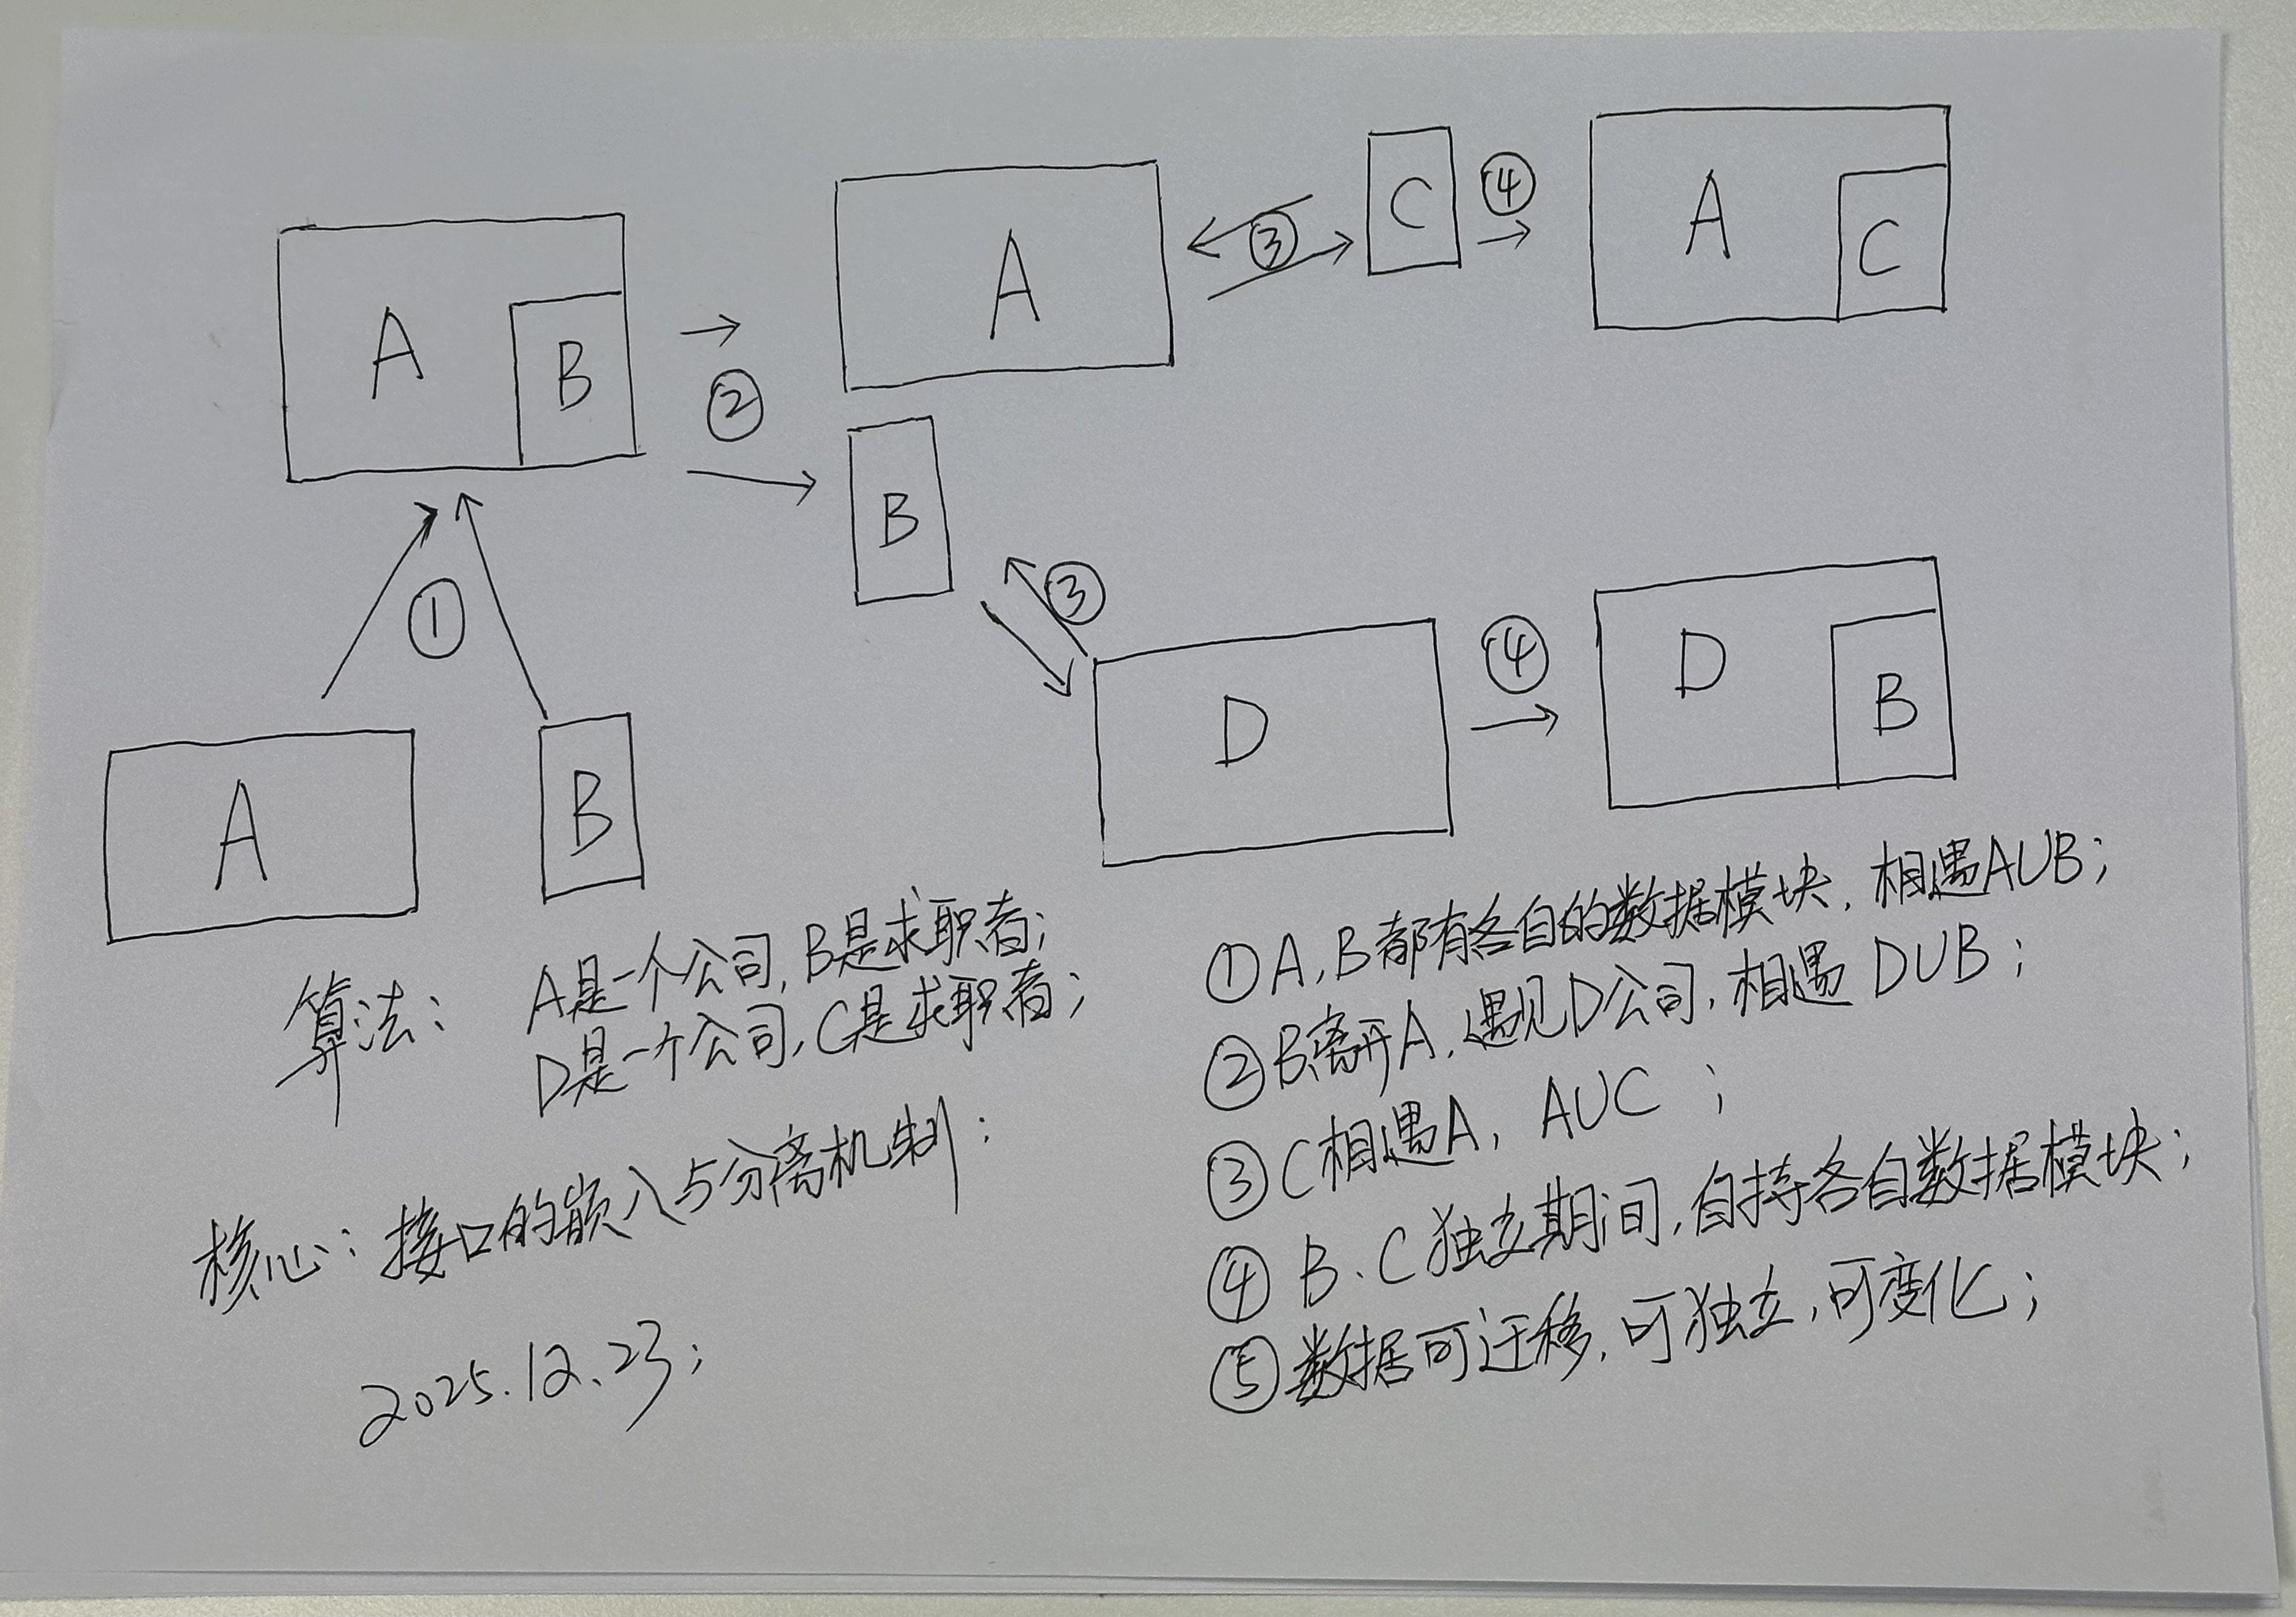 A
B
②
A
③
C
④
A
C
①
B
③
D
④
D
B
A
B
算法： A是一个公司，B是求职者；
D是一个公司，C是求职者；
核心：接口的嵌入与分离机制：
2025.12.23；
①A，B都有各自的数据模块，相遇AUB；
②B离开A，遇见D公司，相遇DUB；
③C相遇A，AUC；
④B、C独立期间，自持各自数据模块；
⑤数据可迁移，可独立，可变化；